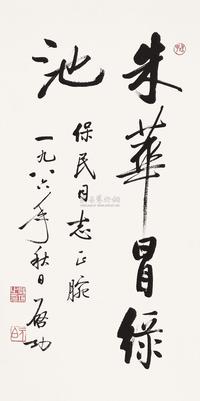 朱華冒綠
池
保民同志正腕
一九八六年秋日啟功